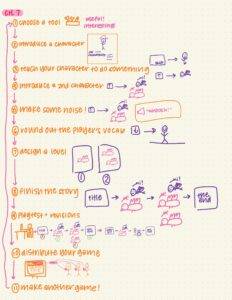 CH. 7
① choose a tool useful!
interesting!
② introduce a character
③ teach your character to do something
④ introduce a 2nd character
⑤ make some noise!
⑥ round out the player's vocab
⑦ design a level
① ②
⑧ finish the story
title → → → the end
⑨ playtest + revisions
⑩ distribute your game
⑪ make another game!